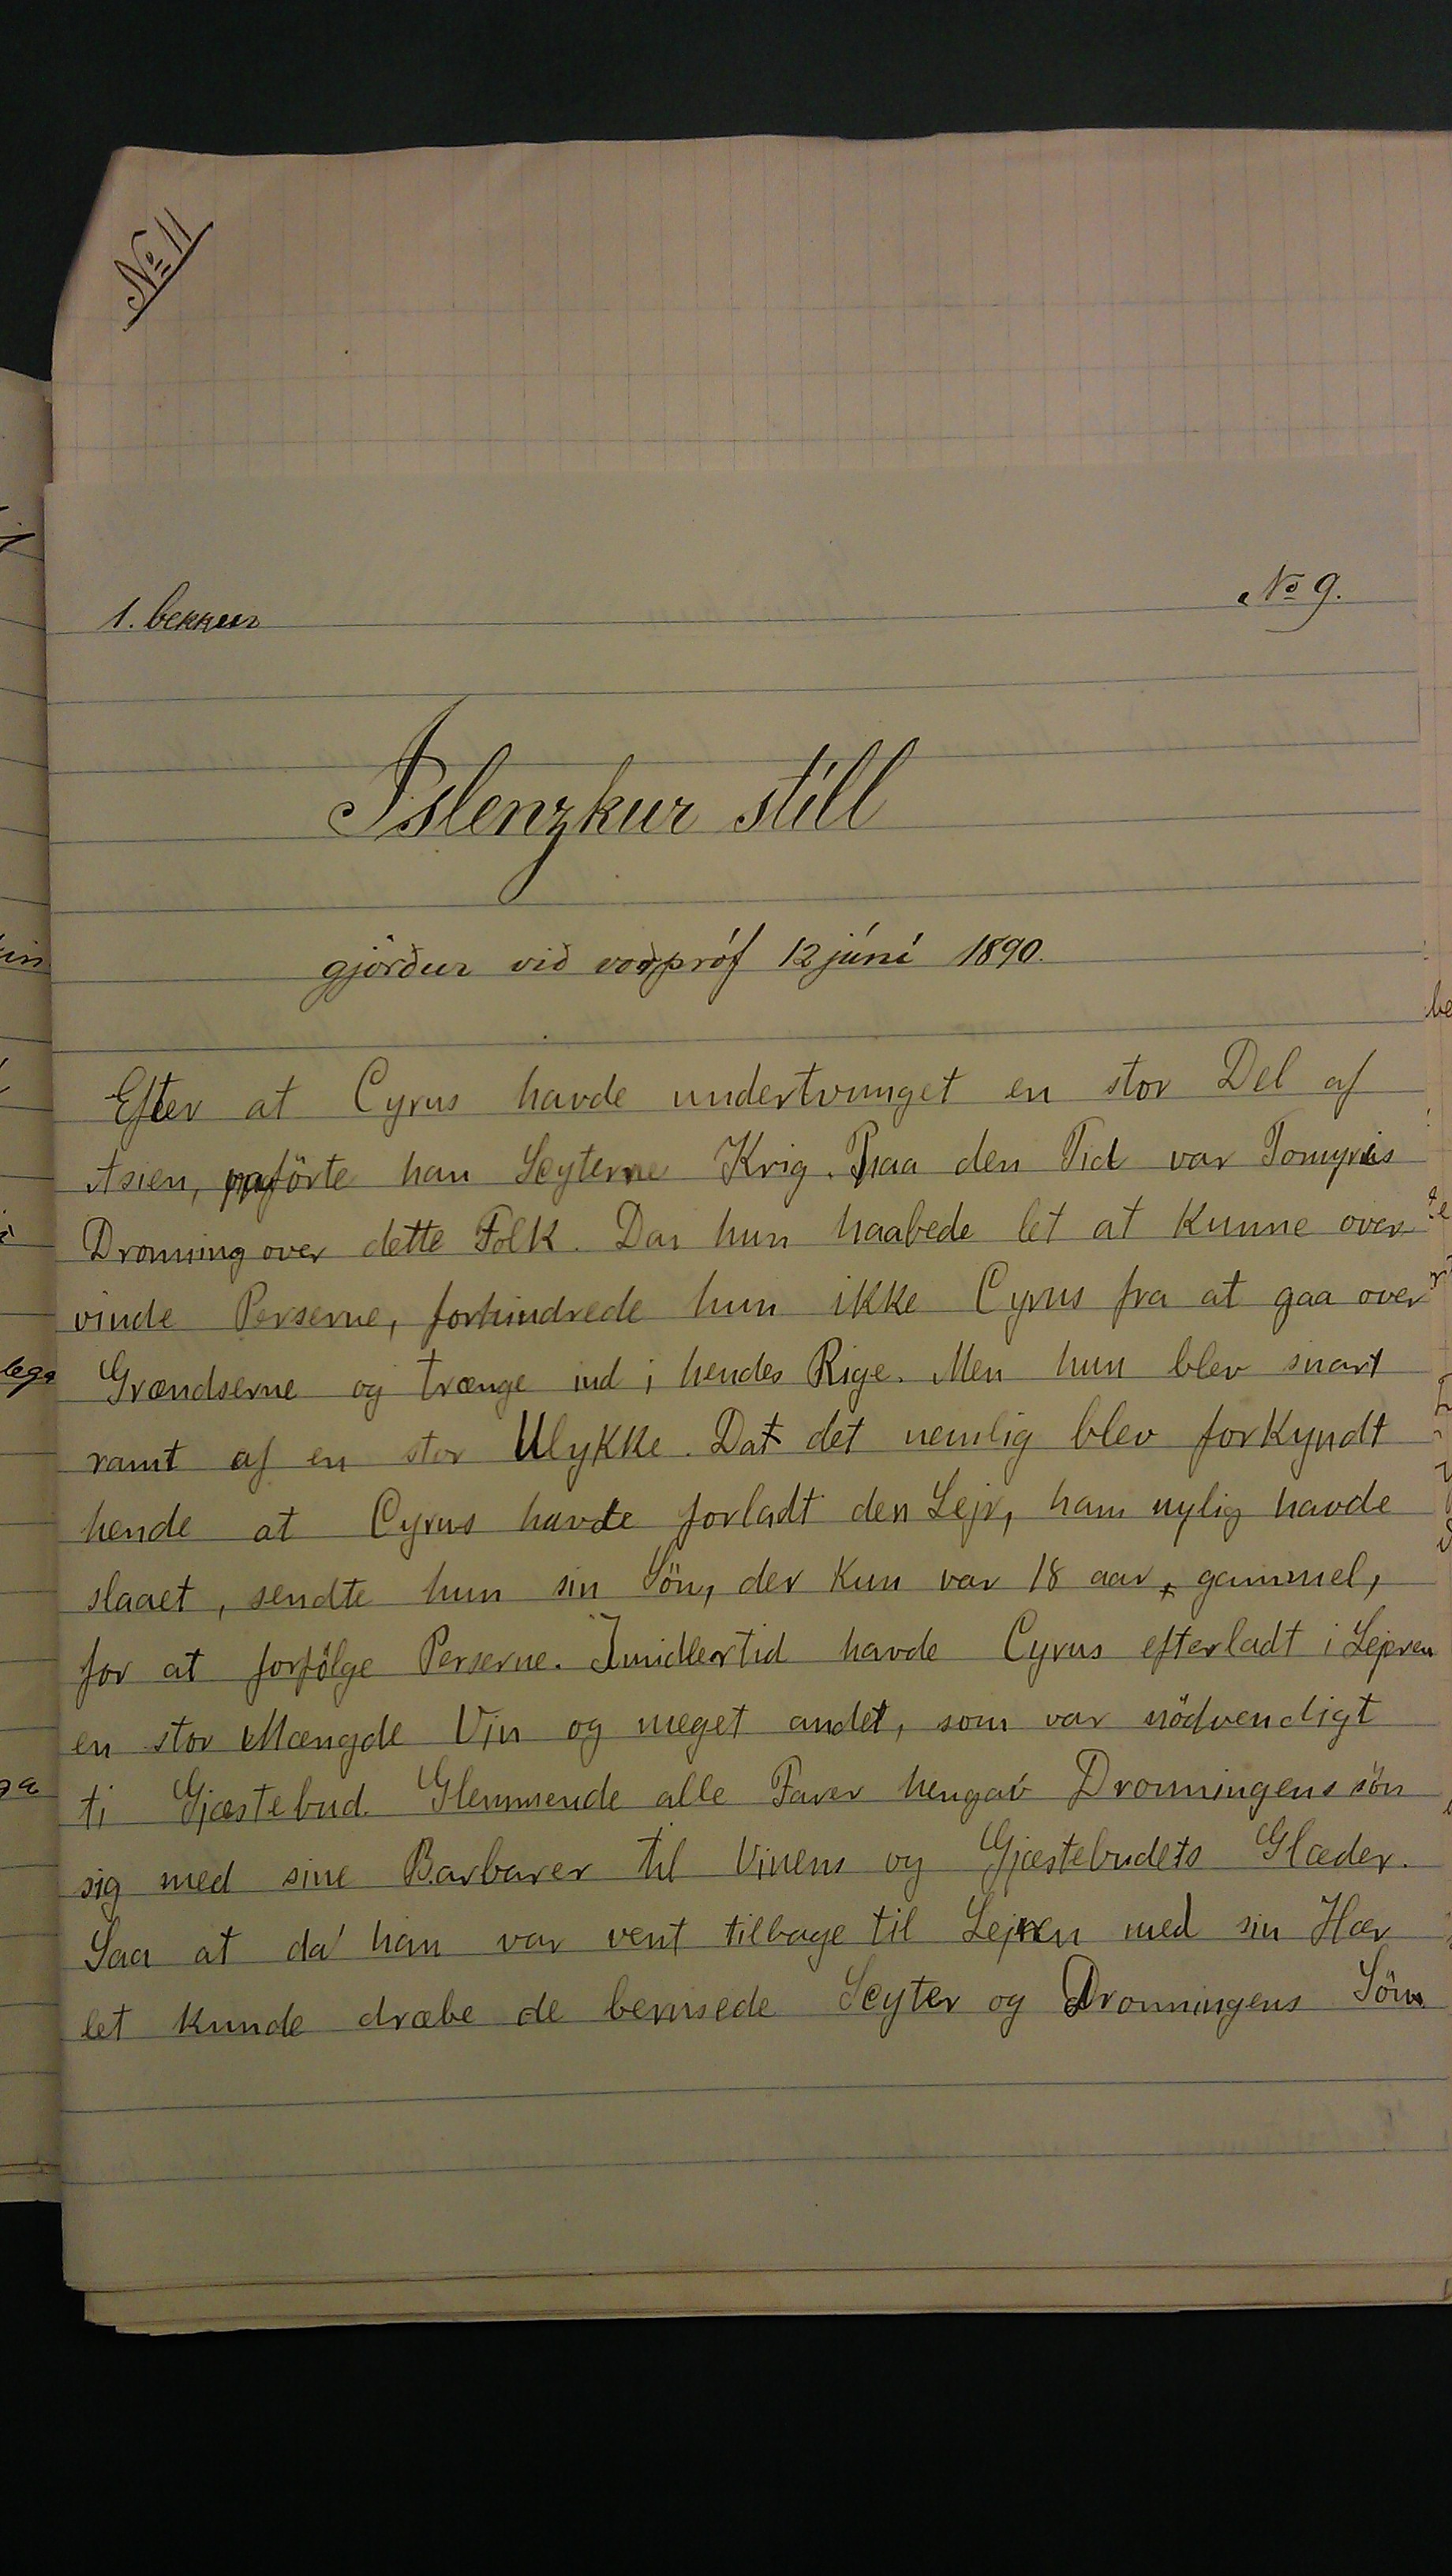 No 11
1. bekkur
No 9.
Íslenzkur stíll
gjörður við vorpróf 12 júní 1890.
Efter at Cyrus havde undertvunget en stor Del af
Asien, paaförte han Scyterne Krig. Paa den Tid var Tomyris
Dronning over dette Folk. Da hun haabede let at kunne over
vinde Perserne, forhindrede hun ikke Cyrus fra at gaa over
Grændserne og trænge ind i hendes Rige. Men hun blev snart
ramt af en stor Ulykke. Da det nemlig blev forkyndt
hende at Cyrus havde forladt den Lejr, han nylig havde
slaaet, sendte hun sin Sön, der kun var 18 aar gammel,
for at forfölge Perserne. Imidlertid havde Cyrus efterladt i Lejren
en stor Mængde Vin og meget andet, som var nödvendigt
ti Gjæstebud. Glemmende alle Farer hengav Dronningens sön
sig med sine Barbarer til Vinens og Gjæstebudets Glæder.
Saa at da han var vent tilbage til Lejren med sin Hær
let kunde dræbe de berusede Scyter og Dronningens Sön